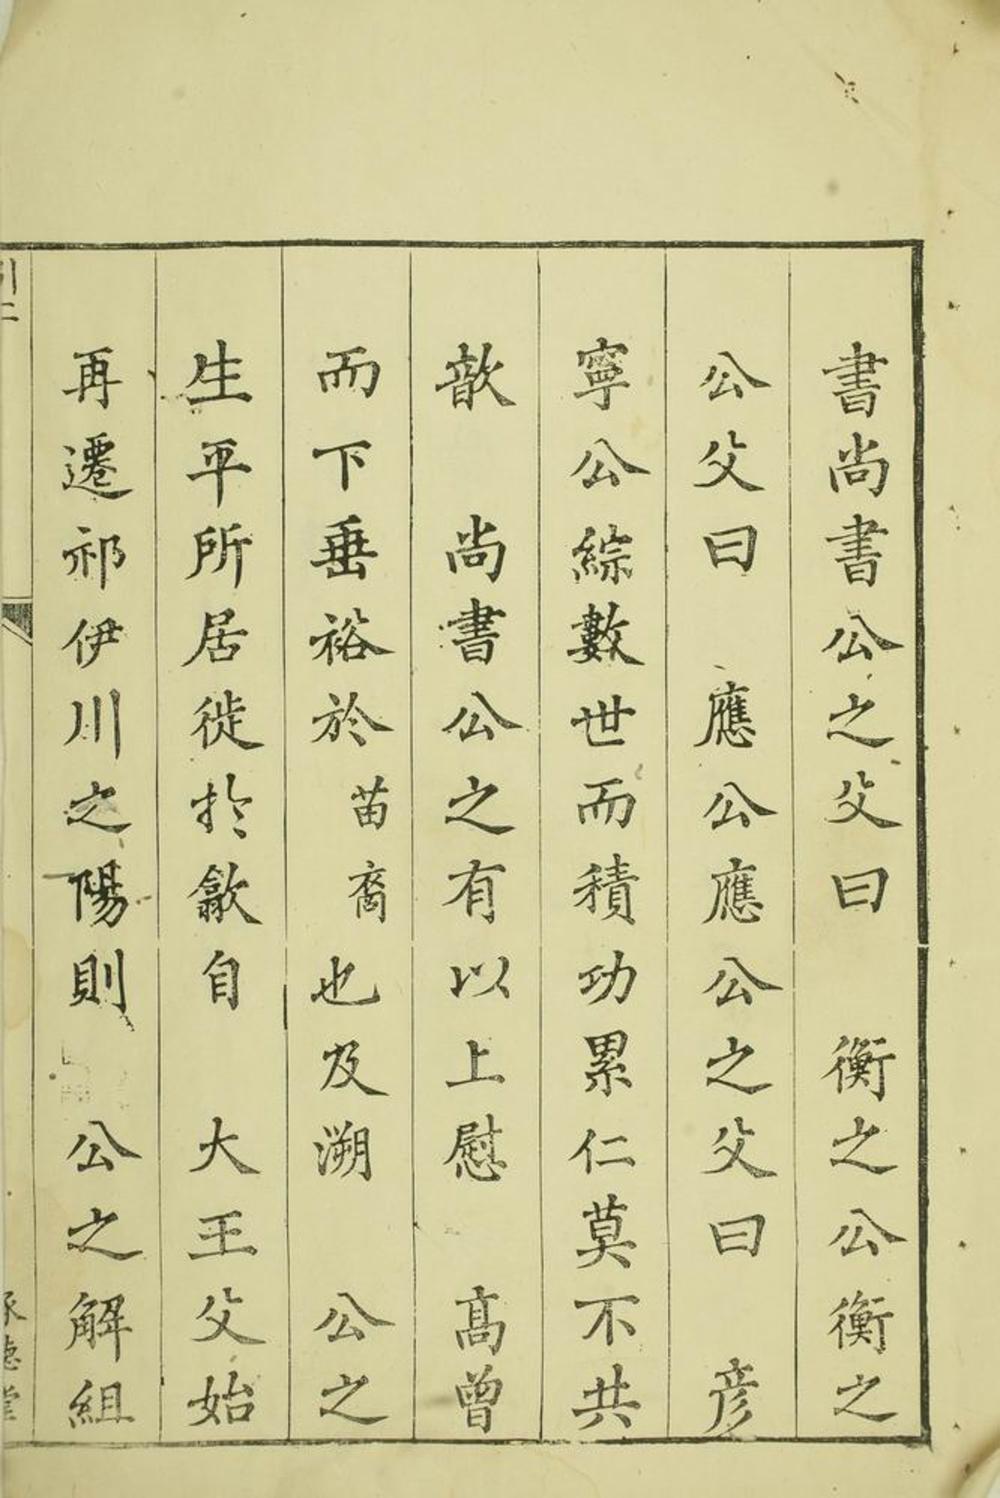 書尚書公之父曰　衡之公衡之
公父曰　應公應公之父曰　彦
寧公綜數世而積功累仁莫不共
歆　尚書公之有以上慰　髙曾
而下垂裕於苗裔也及溯　公之
生平所居徙於歙自　大王父始
再遷祁伊川之陽則　公之解組
引二
德堂